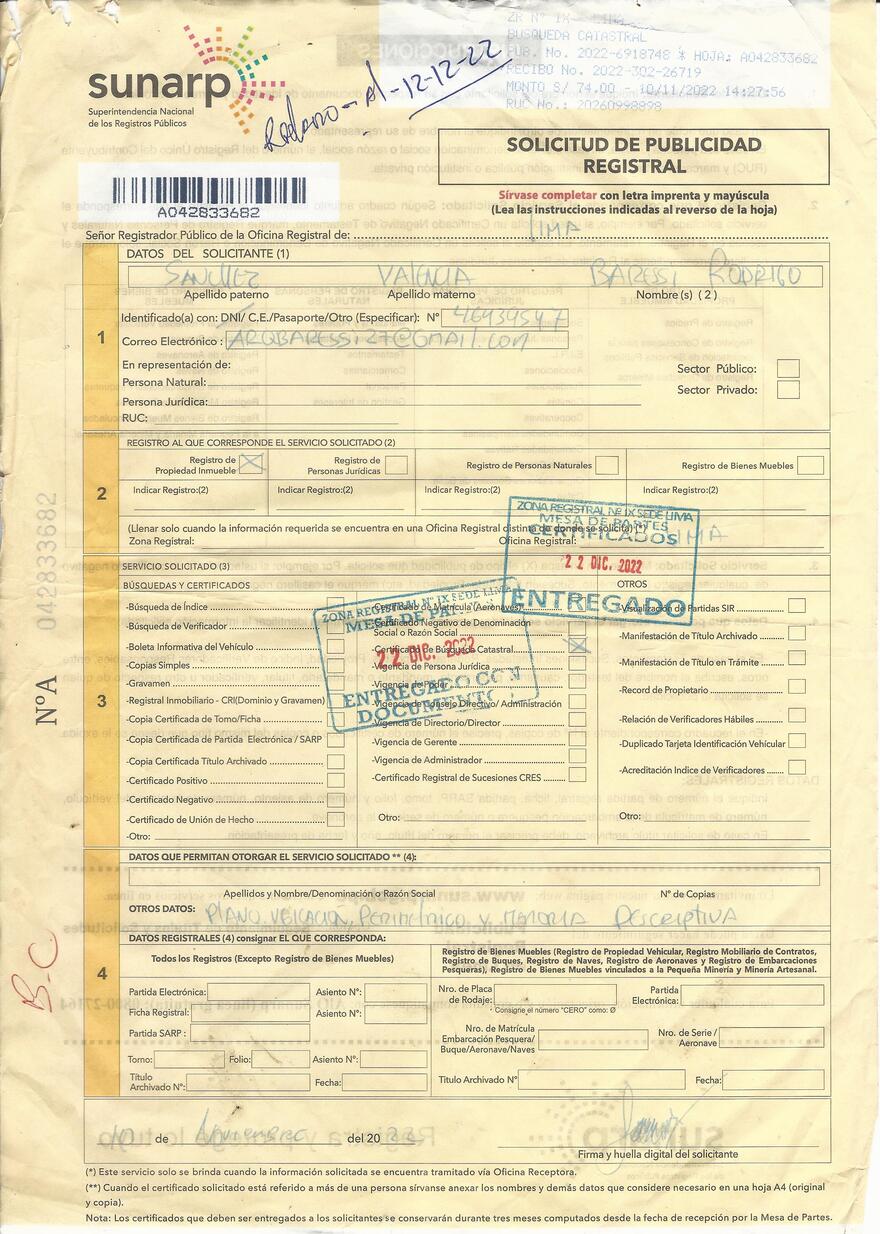 ZR N° IX - LIMA
BUSQUEDA CATASTRAL
PUB. No. 2022-6918748 * HOJA: A042833682
RECIBO No. 2022-302-26719
MONTO S/ 74.00 - 10/11/2022 14:27:56
RUC No.: 20260998898
sunarp
Superintendencia Nacional
de los Registros Públicos
el 12-12-22
SOLICITUD DE PUBLICIDAD
REGISTRAL
A042833682
Sírvase completar con letra imprenta y mayúscula
(Lea las instrucciones indicadas al reverso de la hoja)
Señor Registrador Público de la Oficina Registral de: LIMA
DATOS DEL SOLICITANTE (1)
SANCHEZ VALENCIA BARESSI RODRIGO
Apellido paterno Apellido materno Nombre (s) ( 2 )
1
Identificado(a) con: DNI/ C.E./Pasaporte/Otro (Especificar): N° 46939547
Correo Electrónico : ARQBARESSI27@GMAIL.COM
En representación de:
Sector Público:
Persona Natural:
Sector Privado:
Persona Jurídica:
RUC:
REGISTRO AL QUE CORRESPONDE EL SERVICIO SOLICITADO (2)
2
Registro de Propiedad Inmueble X Registro de Personas Jurídicas Registro de Personas Naturales Registro de Bienes Muebles
Indicar Registro:(2) Indicar Registro:(2) Indicar Registro:(2) Indicar Registro:(2)
(Llenar solo cuando la información requerida se encuentra en una Oficina Registral distinta de donde se solicita) (*)
Zona Registral: Oficina Registral: LIMA
ZONA REGISTRAL N° IX SEDE LIMA
MESA DE PARTES
CERTIFICADOS
22 DIC. 2022
ENTREGADO
N°A 042833682
3
SERVICIO SOLICITADO (3)
BÚSQUEDAS Y CERTIFICADOS
-Búsqueda de Índice
-Búsqueda de Verificador
-Boleta Informativa del Vehículo
-Copias Simples
-Gravamen
-Registral Inmobiliario - CRI(Dominio y Gravamen)
-Copia Certificada de Tomo/Ficha
-Copia Certificada de Partida Electrónica / SARP
-Copia Certificada Título Archivado
-Certificado Positivo
-Certificado Negativo
-Certificado de Unión de Hecho
-Otro:
-Certificado de Matrícula (Aeronaves)
-Certificado Negativo de Denominación
Social o Razón Social
-Certificado de Búsqueda Catastral X
-Vigencia de Persona Jurídica
-Vigencia de Poder
-Vigencia de Consejo Directivo/ Administración
-Vigencia de Directorio/Director
-Vigencia de Gerente
-Vigencia de Administrador
-Certificado Registral de Sucesiones CRES
Otro:
ZONA REGISTRAL N° IX SEDE LIMA
MESA DE PARTES
22 DIC. 2022
ENTREGADO CON
DOCUMENTO
OTROS
-Visualización de Partidas SIR
-Manifestación de Título Archivado
-Manifestación de Título en Trámite
-Record de Propietario
-Relación de Verificadores Hábiles
-Duplicado Tarjeta Identificación Vehicular
-Acreditación Indice de Verificadores
Otro:
DATOS QUE PERMITAN OTORGAR EL SERVICIO SOLICITADO ** (4):
Apellidos y Nombre/Denominación o Razón Social N° de Copias
OTROS DATOS: PLANO UBICACIÓN, PERIMÉTRICO Y MEMORIA DESCRIPTIVA
DATOS REGISTRALES (4) consignar EL QUE CORRESPONDA:
4
B-C
Todos los Registros (Excepto Registro de Bienes Muebles)
Partida Electrónica: Asiento N°:
Ficha Registral: Asiento N°:
Partida SARP :
Tomo: Folio: Asiento N°:
Título
Archivado N°: Fecha:
Registro de Bienes Muebles (Registro de Propiedad Vehicular, Registro Mobiliario de Contratos,
Registro de Buques, Registro de Naves, Registro de Aeronaves y Registro de Embarcaciones
Pesqueras), Registro de Bienes Muebles vinculados a la Pequeña Minería y Minería Artesanal.
Nro. de Placa
de Rodaje: Partida
Electrónica:
* Consigne el número "CERO" como: Ø
Nro. de Matrícula
Embarcación Pesquera/
Buque/Aeronave/Naves Nro. de Serie /
Aeronave
Título Archivado N° Fecha:
10 de Noviembre del 2022
Firma y huella digital del solicitante
(*) Este servicio solo se brinda cuando la información solicitada se encuentra tramitado vía Oficina Receptora.
(**) Cuando el certificado solicitado está referido a más de una persona sírvanse anexar los nombres y demás datos que considere necesario en una hoja A4 (original
y copia).
Nota: Los certificados que deben ser entregados a los solicitantes se conservarán durante tres meses computados desde la fecha de recepción por la Mesa de Partes.